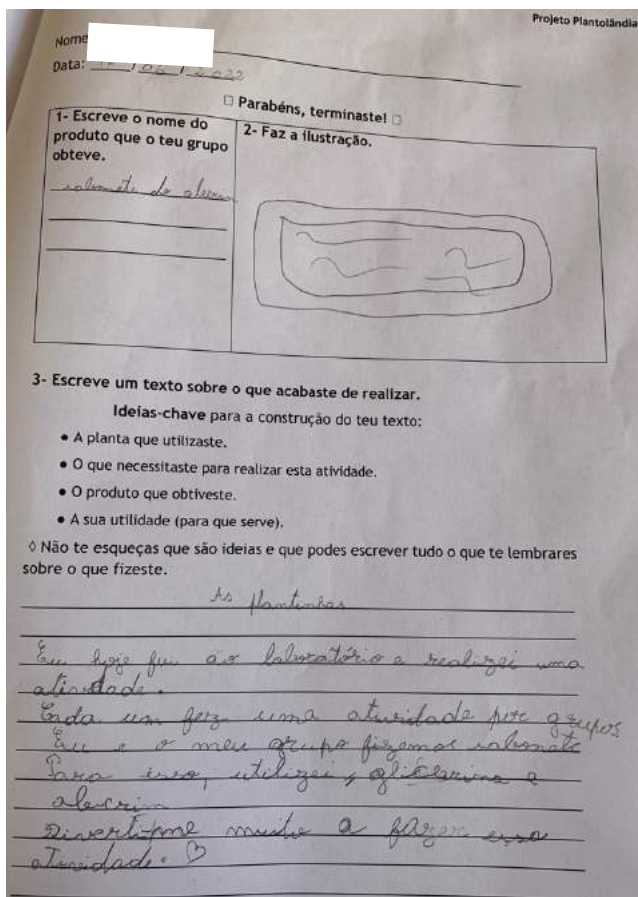 Projeto Plantolândia
Nome
Data: / 06 / 2022
□ Parabéns, terminaste! □
1- Escreve o nome do
produto que o teu grupo
obteve.
sabonete de alecrim
2- Faz a ilustração.
3- Escreve um texto sobre o que acabaste de realizar.
Ideias-chave para a construção do teu texto:
• A planta que utilizaste.
• O que necessitaste para realizar esta atividade.
• O produto que obtiveste.
• A sua utilidade (para que serve).
◊ Não te esqueças que são ideias e que podes escrever tudo o que te lembrares
sobre o que fizeste.
As plantinhas
Eu hoje fui ao laboratório e realizei uma
atividade.
um fez uma atividade por grupos
Eu e o meu grupo fizemos sabonete
Para isso, utilizei, glicerina e
alecrim
Diverti-me muito a fazer essa
atividade. ♡